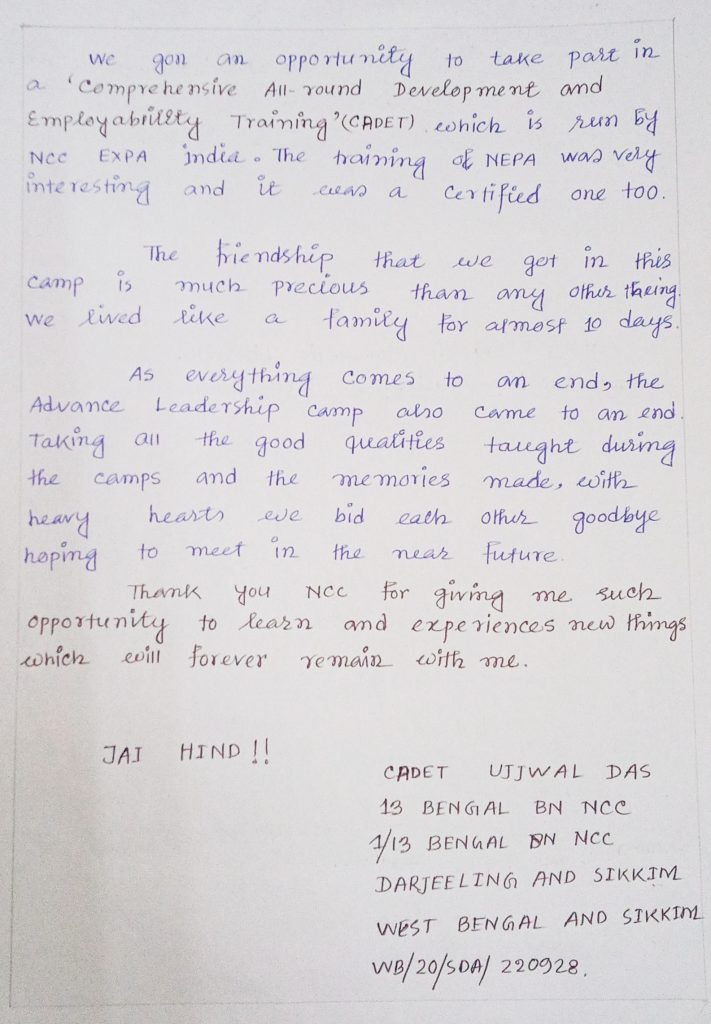 We gon an opportunity to take part in
a 'Comprehensive All-round Development and
Employability Training'(CADET) which is run by
NCC EXPA india. The training of NEPA was very
interesting and it was a certified one too.
The friendship that we got in this
camp is much precious than any other thing.
We lived like a family for almost 10 days.
As everything comes to an end, the
Advance Leadership camp also came to an end.
Taking all the good qualities taught during
the camps and the memories made, with
heavy hearts we bid each other goodbye
hoping to meet in the near future.
Thank you NCC for giving me such
opportunity to learn and experiences new things
which will forever remain with me.
JAI HIND!!
CADET UJJWAL DAS
13 BENGAL BN NCC
1/13 BENGAL BN NCC
DARJEELING AND SIKKIM
WEST BENGAL AND SIKKIM
WB/20/SDA/ 220928.